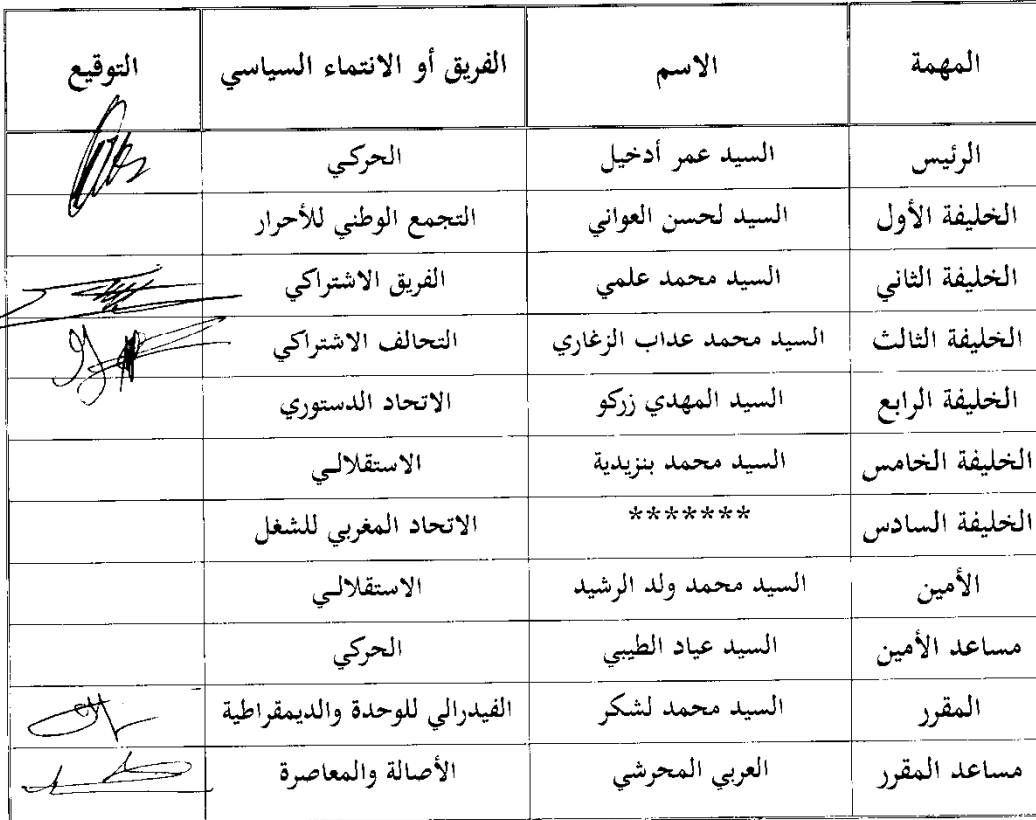 المهمة الاسم الفريق أو الانتماء السياسي التوقيع
الرئيس السيد عمر أدخيل الحركي
الخليفة الأول السيد لحسن العواني التجمع الوطني للأحرار
الخليفة الثاني السيد محمد علمي الفريق الاشتراكي
الخليفة الثالث السيد محمد عداب الزغاري التحالف الاشتراكي
الخليفة الرابع السيد المهدي زركو الاتحاد الدستوري
الخليفة الخامس السيد محمد بنزيدية الاستقلالي
الخليفة السادس ******* الاتحاد المغربي للشغل
الأمين السيد محمد ولد الرشيد الاستقلالي
مساعد الأمين السيد عياد الطيبي الحركي
المقرر السيد محمد لشكر الفيدرالي للوحدة والديمقراطية
مساعد المقرر العربي المحرشي الأصالة والمعاصرة